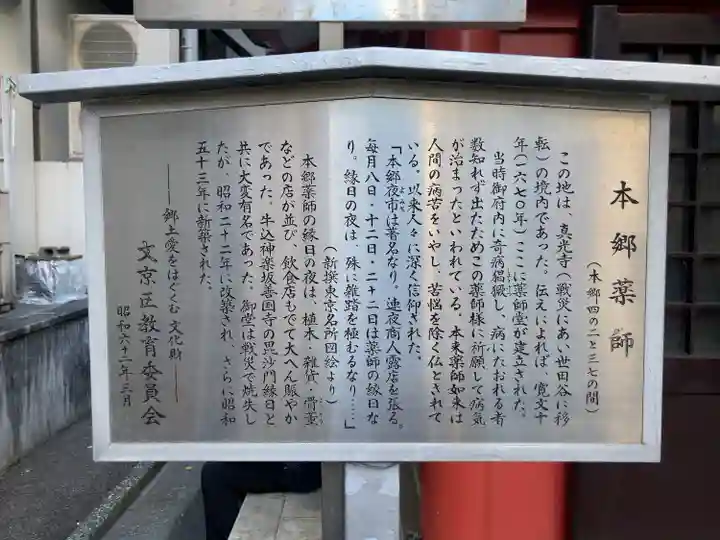 本郷薬師
（本郷四の二と三七の間）
この地は、真光寺（戦災にあい世田谷に移
転）の境内であった。伝えによれば、寛文十
年（一六七〇年）ここに薬師堂が建立された。
当時御府内に奇病猖獗し、病にたおれる者
数知れず出たためこの薬師様に祈願して病気
が治まったといわれている。本来薬師如来は
人間の病苦をいやし、苦悩を除く仏といわれて
いる。以来人々に深く信仰された。
「本郷夜市は著名なり。連夜商人露店を張る。
よみせ
毎月八日・十二日・二十二日は薬師の縁日な
り。縁日の夜は、殊に雑踏を極むるなり……」
（新撰東京名所図絵より）
本郷薬師の縁日の夜は、植木・雑貨・骨董
などの店が並び、飲食店もでて大へん賑やか
であった。牛込神楽坂善国寺の毘沙門縁日と
共に大変有名であった。御堂は戦災で焼失し
たが、昭和二十二年に改築され、さらに昭和
五十三年に新築された。
――郷土愛をはぐくむ文化財――
文京区教育委員会
昭和六十二年三月